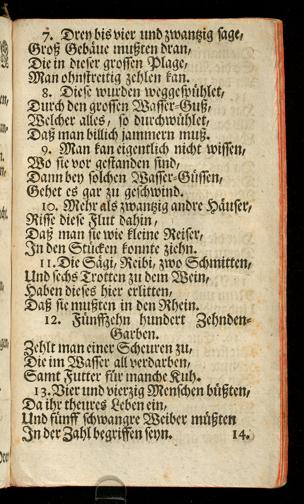 7. Drey bis vier und zwantzig sage,
Groß Gebäue mußten dran,
Die in dieser grossen Plage,
Man ohnstreitig zehlen kan.
8. Diese wurden weggespühlet,
Durch den grossen Wasser-Guß,
Welcher alles, so durchwühlet,
Daß man billich jammern muß.
9. Man kan eigentlich nicht wissen,
Wo sie vor gestanden sind,
Dann bey solchen Wasser-Güssen,
Gehet es gar zu geschwind.
10. Mehr als zwantzig andre Häuser,
Risse diese Flut dahin,
Daß man sie wie kleine Reiser,
In den Stücken konnte ziehn.
11. Die Sägi, Reibi, zwo Schmitten,
Und sechs Trotten zu dem Wein,
Haben dieses hier erlitten,
Daß sie mußten in den Rhein.
12. Fünffzehn hundert Zehnden-
Garben.
Zehlt man einer Scheuren zu,
Die im Wasser all verdarben,
Samt Futter für manche Kuh.
13. Vier und vierzig Menschen büßten,
Da ihr theures Leben ein,
Und fünff schwangre Weiber müßten
In der Zahl begriffen seyn.
14.